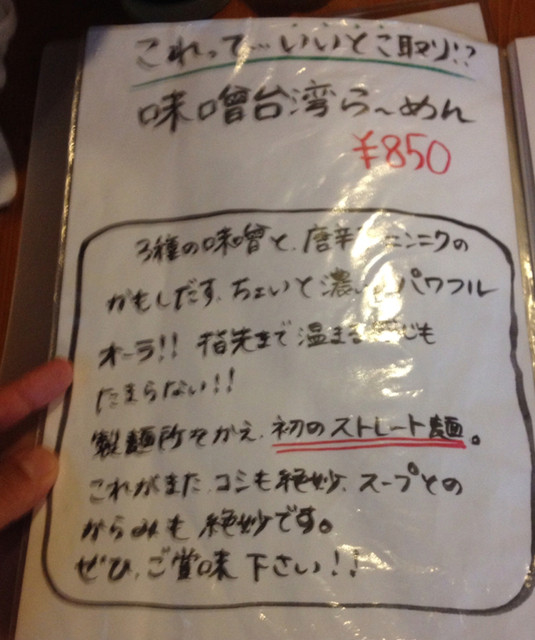 これって…いいとこ取り!?
味噌台湾ら〜めん
¥850
3種の味噌と、唐辛 ニンニクの
かもしだす、ちょいと濃い パワフル
オーラ!! 指先まで温まる 感じも
たまらない!!
製麺所をかえ、初のストレート麺。
これがまた、コシも絶妙、スープとの
からみも絶妙です。
ぜひ、ご賞味下さい!!